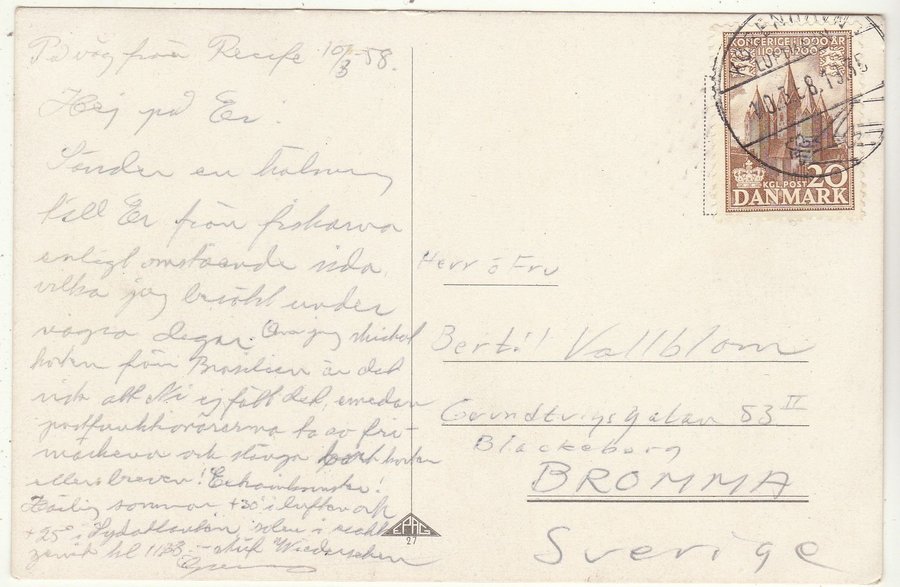 På väg från Recife 10/3-58.
Hej på Er!
Sänder en hälsning
till Er från fiskarna
enligt omstående sida,
vilka jag besökt under
några dagar. Om jag skickat
korten från Brasilien är det
risk att Ni ej fått det, emedan
postfunktionärerna ta av fri-
märkena och slänga bort korten
eller breven!
Härlig sommar, +30° i luften och
+25° i Sydatlanten, solen i
zenit kl 1138. - Auf Wiedersehen
KONGERIGE I 1000 ÅR
KGL. POST 20
DANMARK
KØBENHAVN
LUFTHAVN
10.3.58.19-
Herr o Fru
Bertil Vallblom
Grundtvigsgatan 53 IV
Blackeberg
BROMMA
Sverige
EPAG
27